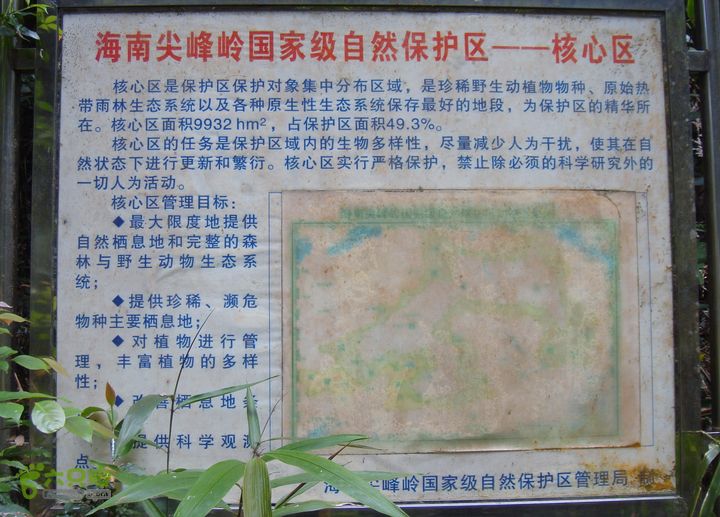 海南尖峰岭国家级自然保护区——核心区
核心区是保护区保护对象集中分布区域，是珍稀野生动植物物种、原始热
带雨林生态系统以及各种原生性生态系统保存最好的地段，为保护区的精华所
在。核心区面积9932 hm²，占保护区面积49.3%。
核心区的任务是保护区域内的生物多样性，尽量减少人为干扰，使其在自
然状态下进行更新和繁衍。核心区实行严格保护，禁止除必须的科学研究外的
一切人为活动。
核心区管理目标：
◆最大限度地提供
自然栖息地和完整的森
林与野生动物生态系
统；
◆提供珍稀、濒危
物种主要栖息地；
◆对植物进行管
理，丰富植物的多样
性；
◆改善栖息地条
提供科学观测
点
海南尖峰岭国家级自然保护区管理局